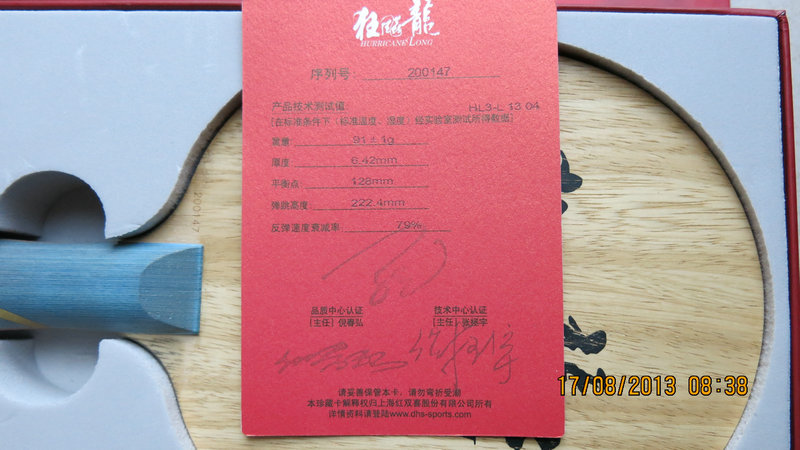 狂飚龍
HURRICANE LONG
序列号: 200147
产品技术测试值: HL3-L 13 04
[在标准条件下（标准温度、湿度）经实验室测试所得数据]
重量: 91±1g
厚度: 6.42mm
平衡点 128mm
弹跳高度 222.4mm
反弹速度衰减率 79%
品质中心认证 技术中心认证
[主任] 倪春弘 [主任] 张授宇
请妥善保管本卡，请勿弯折受潮
本珍藏卡解释权归上海红双喜股份有限公司所有
详情资料请登陆www.dhs-sports.com
200147
17/08/2013 08:38